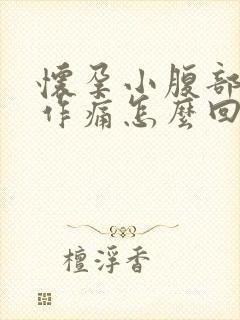 懷孕小腹部
作痛怎麼回
檀浮香